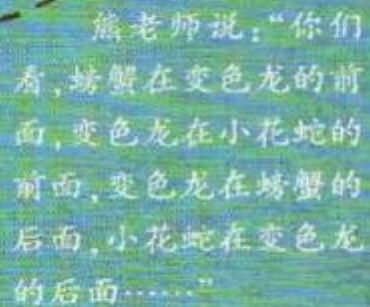 熊老师说：“你们
看，螃蟹在变色龙的前
面，变色龙在小花蛇的
前面，变色龙在螃蟹的
后面，小花蛇在变色龙
的后面……”